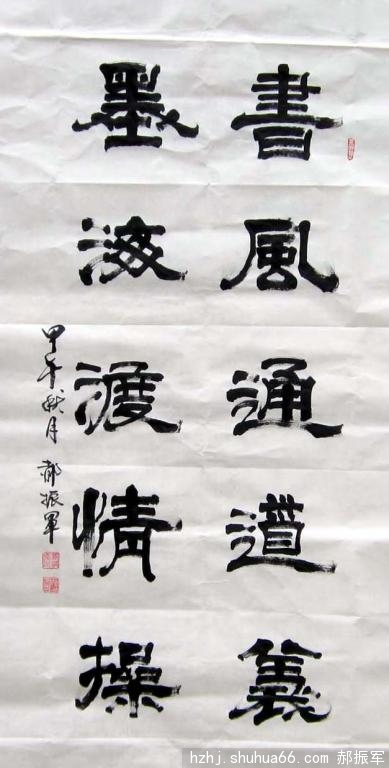 書風通道義
墨海渡情操
甲午秋月 郝振軍
hzhj.shuhua66.com 郝振军